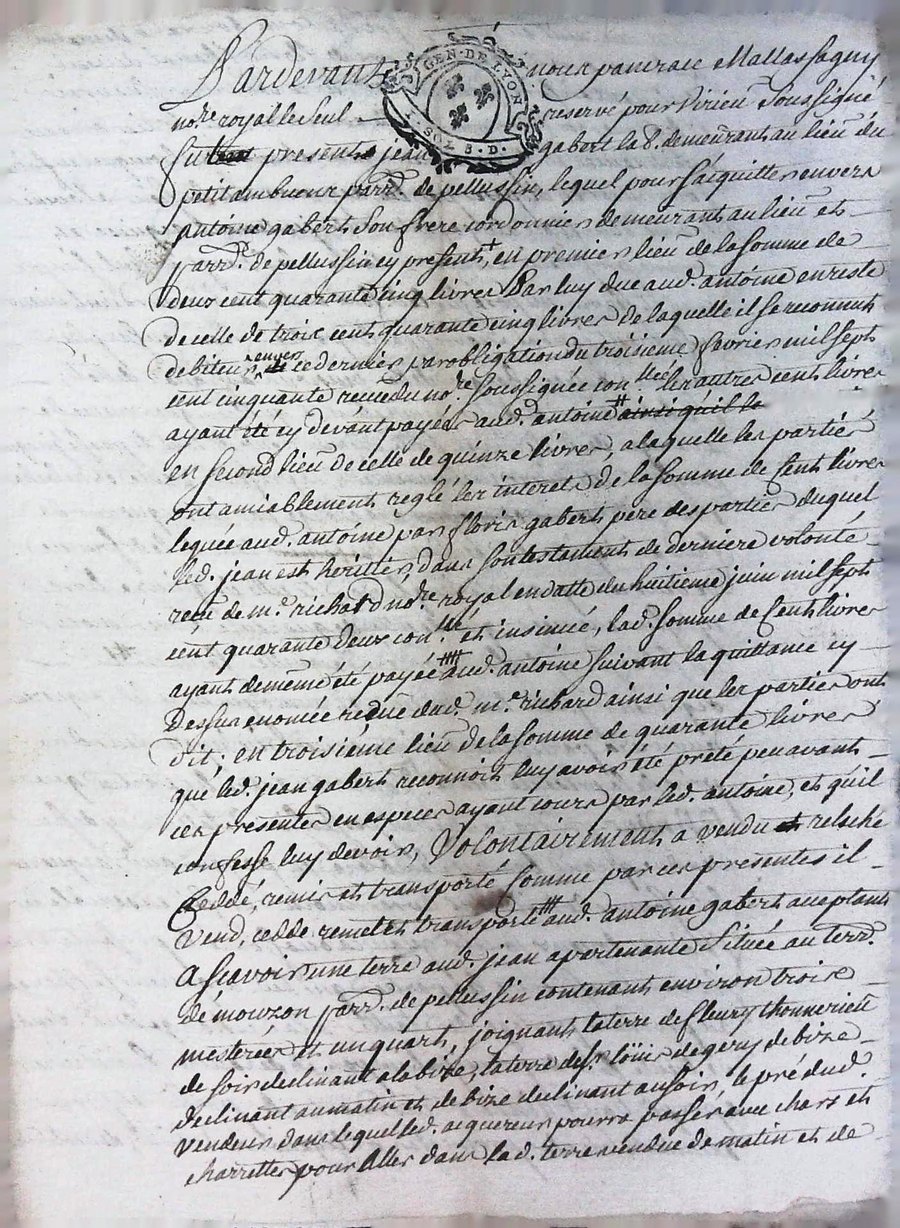 Pardevant nous pancrace Mallassagny
nore royal le seul reservé pour Virieu soussigné
GEN. DE LYON
1. SOL 8. D.
fut present jean gabert lab. demeurant au lieu du
petit ambueux parr. de pellussin, lequel pour s'acquitter envers
antoine gabert son frere cordonnier demeurant au lieu et
parr. de pellussin cy present, + en premier lieu de la somme de
deux cent quarante cinq livres Par luy due aud. antoine en reste
de celle de trois cent quarante cinq livres de laquelle il se reconnut
debiteur envers ce dernier par obligation du troisieme fevrier mil sept
cent cinquante receu du nore. soussignée conllée les autres cent livres
ayant été cy devant payées aud. antoine # ainsi qu'il le
en second lieu de celle de quinze livres, a laquelle les parties
ont amiablement reglé les interets de la somme de Cent livres
leguée aud. antoine par floris gabert pere des parties duquel
led. jean est heritier, dans son testament de derniere volonté
receu de me. richard nore royal en datte du huitieme juin mil sept
cent quarante deux conllé et insinué, lad. somme de Cent livres
ayant de meme été payée aud. antoine suivant la quittance cy
dessus enoncée recüe dud. me. richard ainsi que les parties ont
dit; en troisiéme lieu de la somme de quarante livres
que led. jean gabert reconnoit luy avoir été preté peu avant
ces presentes en especes ayant cours par led. antoine, et qu'il
confesse luy devoir, Volontairement a vendu et relaché
Ceddé, remis et transporté comme par ces presentes il
vend, cedde remet et transporte aud. antoine gabert acceptant
A scavoir une terre aud. jean apartenante située au terr.
de mouzon parr. de pellussin contenant environ trois
mesterées et un quart, joignant la terre de fleury thonnerieu
de soir declinant a la bize, la terre de sr. loüis degery de bize
declinant au matin et de bize declinant au soir, le pré dud.
vendeur dans lequel led. acquereur pourra passer avec chars et
charrettes pour aller dans lad. terre vendue de matin et de